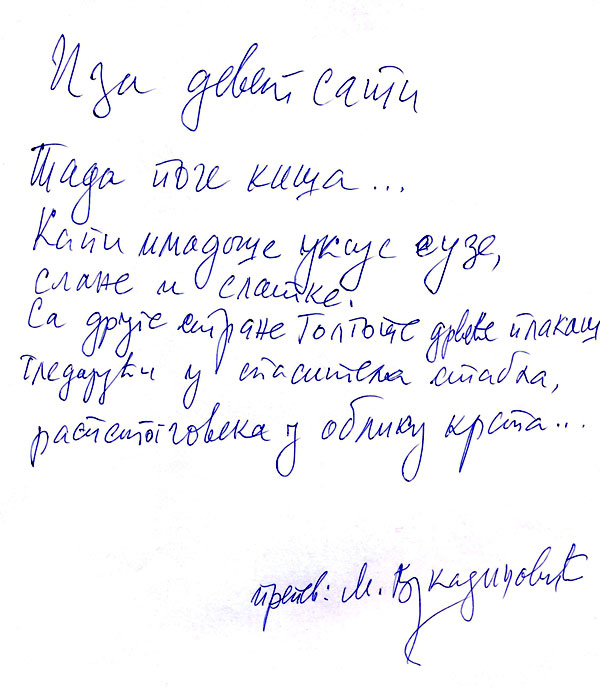 Иза девет сати
Тада поче киша...
Капи имадоше укус сузе,
слане и слатке.
Са друге стране Голготе дрвеће плакаш
гледајући у спаситеља стабла,
распетог човека у облику крста...
препев: М. Вукадиновић